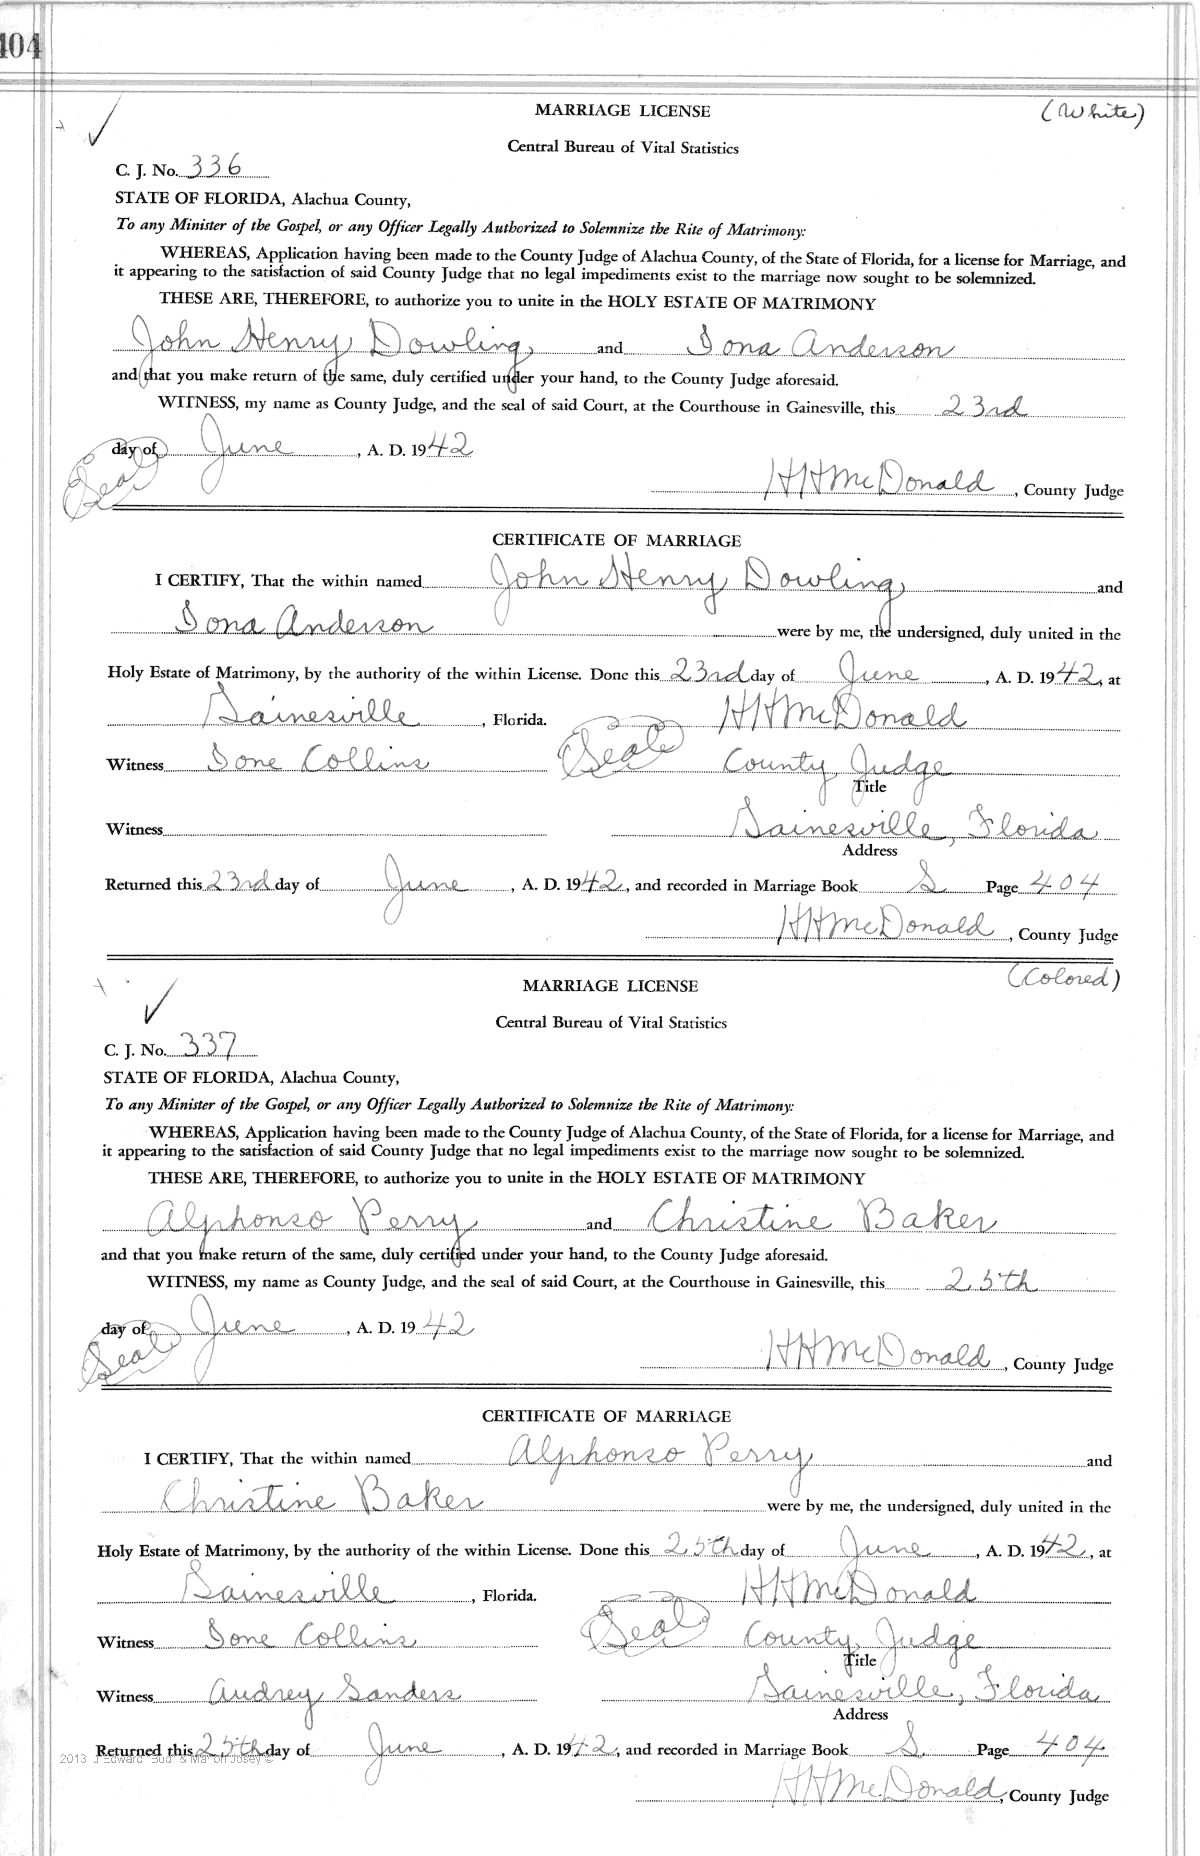 404
MARRIAGE LICENSE (White)
Central Bureau of Vital Statistics
C. J. No. 336
STATE OF FLORIDA, Alachua County,
To any Minister of the Gospel, or any Officer Legally Authorized to Solemnize the Rite of Matrimony:
WHEREAS, Application having been made to the County Judge of Alachua County, of the State of Florida, for a license for Marriage, and
it appearing to the satisfaction of said County Judge that no legal impediments exist to the marriage now sought to be solemnized.
THESE ARE, THEREFORE, to authorize you to unite in the HOLY ESTATE OF MATRIMONY
John Henry Dowling and Iona Anderson
and that you make return of the same, duly certified under your hand, to the County Judge aforesaid.
WITNESS, my name as County Judge, and the seal of said Court, at the Courthouse in Gainesville, this 23rd
day of June, A. D. 1942
(Seal) HHMcDonald, County Judge
CERTIFICATE OF MARRIAGE
I CERTIFY, That the within named John Henry Dowling and
Iona Anderson were by me, the undersigned, duly united in the
Holy Estate of Matrimony, by the authority of the within License. Done this 23rd day of June, A. D. 1942, at
Gainesville, Florida. HHMcDonald
Witness Ione Collins (Seal) County Judge
Title
Witness Gainesville, Florida
Address
Returned this 23rd day of June, A. D. 1942, and recorded in Marriage Book S Page 404
HHMcDonald, County Judge
MARRIAGE LICENSE (Colored)
Central Bureau of Vital Statistics
C. J. No. 337
STATE OF FLORIDA, Alachua County,
To any Minister of the Gospel, or any Officer Legally Authorized to Solemnize the Rite of Matrimony:
WHEREAS, Application having been made to the County Judge of Alachua County, of the State of Florida, for a license for Marriage, and
it appearing to the satisfaction of said County Judge that no legal impediments exist to the marriage now sought to be solemnized.
THESE ARE, THEREFORE, to authorize you to unite in the HOLY ESTATE OF MATRIMONY
Alphonso Perry and Christine Baker
and that you make return of the same, duly certified under your hand, to the County Judge aforesaid.
WITNESS, my name as County Judge, and the seal of said Court, at the Courthouse in Gainesville, this 25th
day of June, A. D. 1942
(Seal) HHMcDonald, County Judge
CERTIFICATE OF MARRIAGE
I CERTIFY, That the within named Alphonso Perry and
Christine Baker were by me, the undersigned, duly united in the
Holy Estate of Matrimony, by the authority of the within License. Done this 25th day of June, A. D. 1942, at
Gainesville, Florida. HHMcDonald
Witness Ione Collins (Seal) County Judge
Title
Witness Audrey Sanders Gainesville, Florida
Address
Returned this 25th day of June, A. D. 1942, and recorded in Marriage Book S. Page 404
2013 J Edward "Bud" & Marion Josey ©
HHMcDonald, County Judge